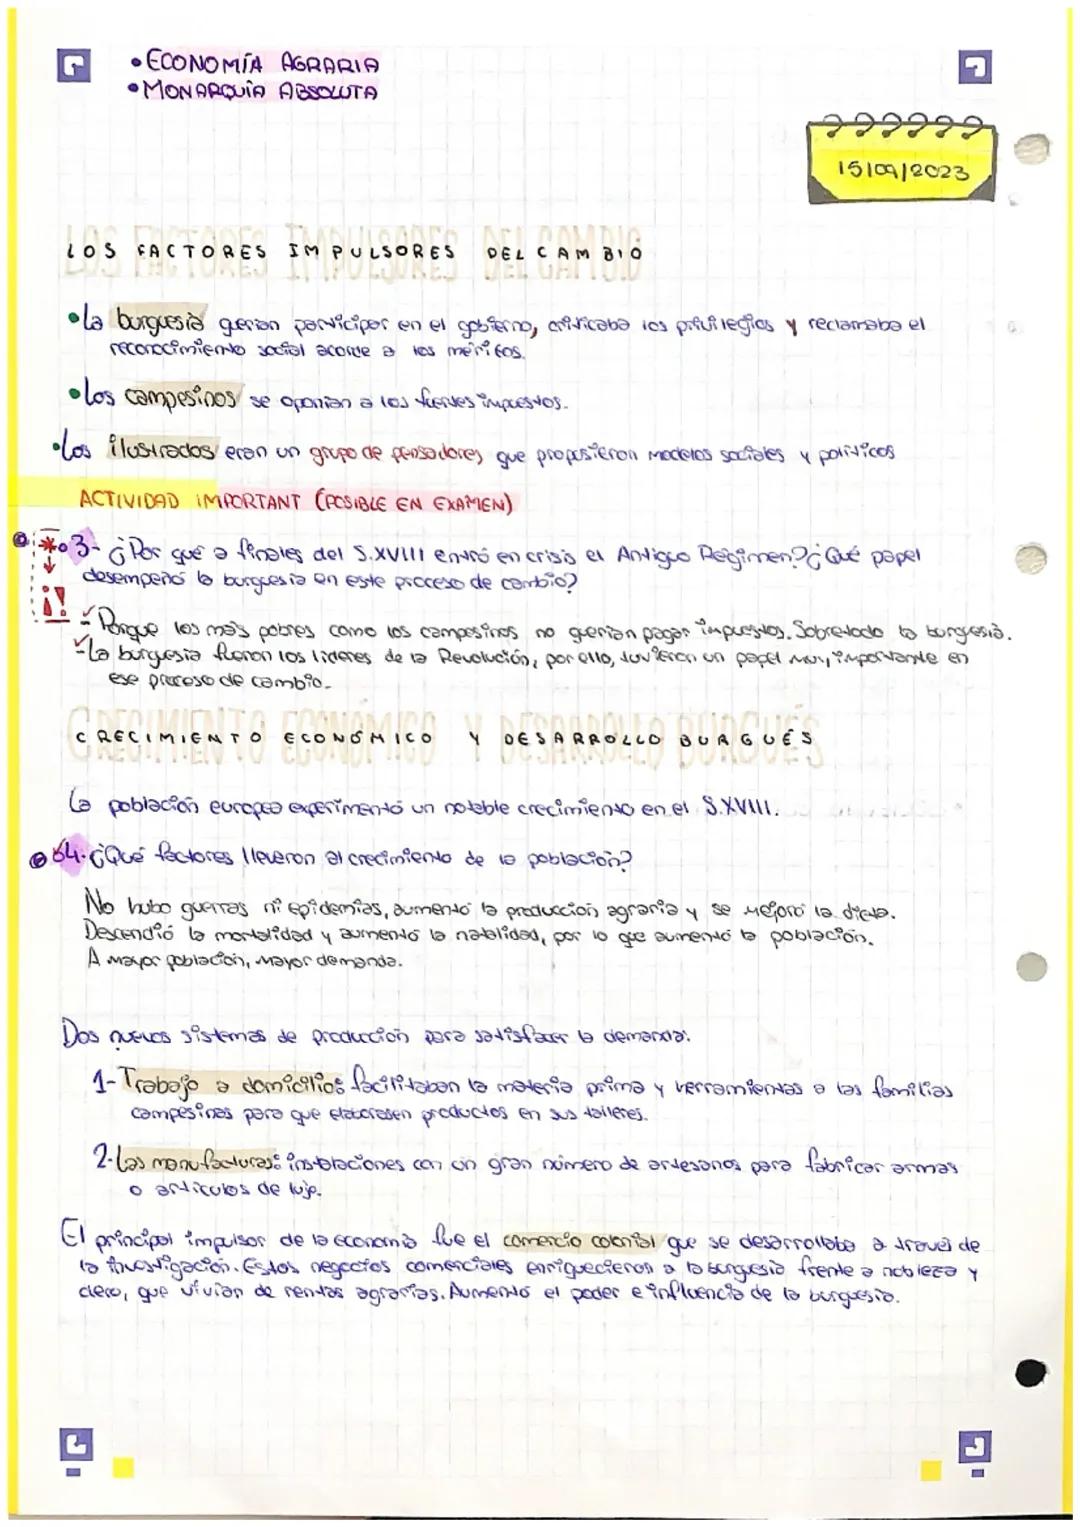 • ECONOMÍA AGRARIA
• MONARQUÍA ABSOLUTA
15/09/2023
LOS FACTORES IMPULSORES DEL CAMBIO
• La burguesía querian participar en el gobierno, criticaba los privilegios y reclamaba el
reconocimiento social acorde a los méritos.
• Los campesinos se oponian a los fuertes impuestos.
• Los ilustrados eran un grupo de pensadores que propusieron modelos sociales y políticos
ACTIVIDAD IMPORTANT (POSIBLE EN EXAMEN)
3- ¿Por qué a finales del S.XVIII entró en crisis el Antiguo Régimen? ¿Qué papel
desempeñó la burguesia en este proceso de cambio?
- Porque los más pobres como los campesinos no querian pagar impuestos. Sobretodo la burguesía.
- La burguesia fueron los lideres de la Revolución, por ello, tuvieron un papel muy importante en
ese proceso de cambio.
CRECIMIENTO ECONÓMICO Y DESARROLLO BURGUÉS
La población europea experimentó un notable crecimiento en el S.XVIII.
64. ¿Qué factores llevaron al crecimiento de la población?
No hubo guerras ni epidemias, aumentó la producción agraria y se mejoró la dieta.
Descendió la mortalidad y aumentó la natalidad, por lo que aumentó la población.
A mayor población, mayor demanda.
Dos nuevos sistemas de producción para satisfacer la demanda:
1- Trabajo a domicilio: facilitaban la materia prima y herramientas a las familias
campesinas para que elaborasen productos en sus talleres.
2- Las manufacturas: instalaciones con un gran número de artesanos para fabricar armas
o artículos de lujo.
El principal impulsor de la economía fue el comercio colonial que se desarrollaba a traves de
la investigación. Estos negocios comerciales enriquecieron a la burguesía frente a nobleza y
clero, que vivían de rentas agrarias. Aumentó el poder e influencia de la burguesía.